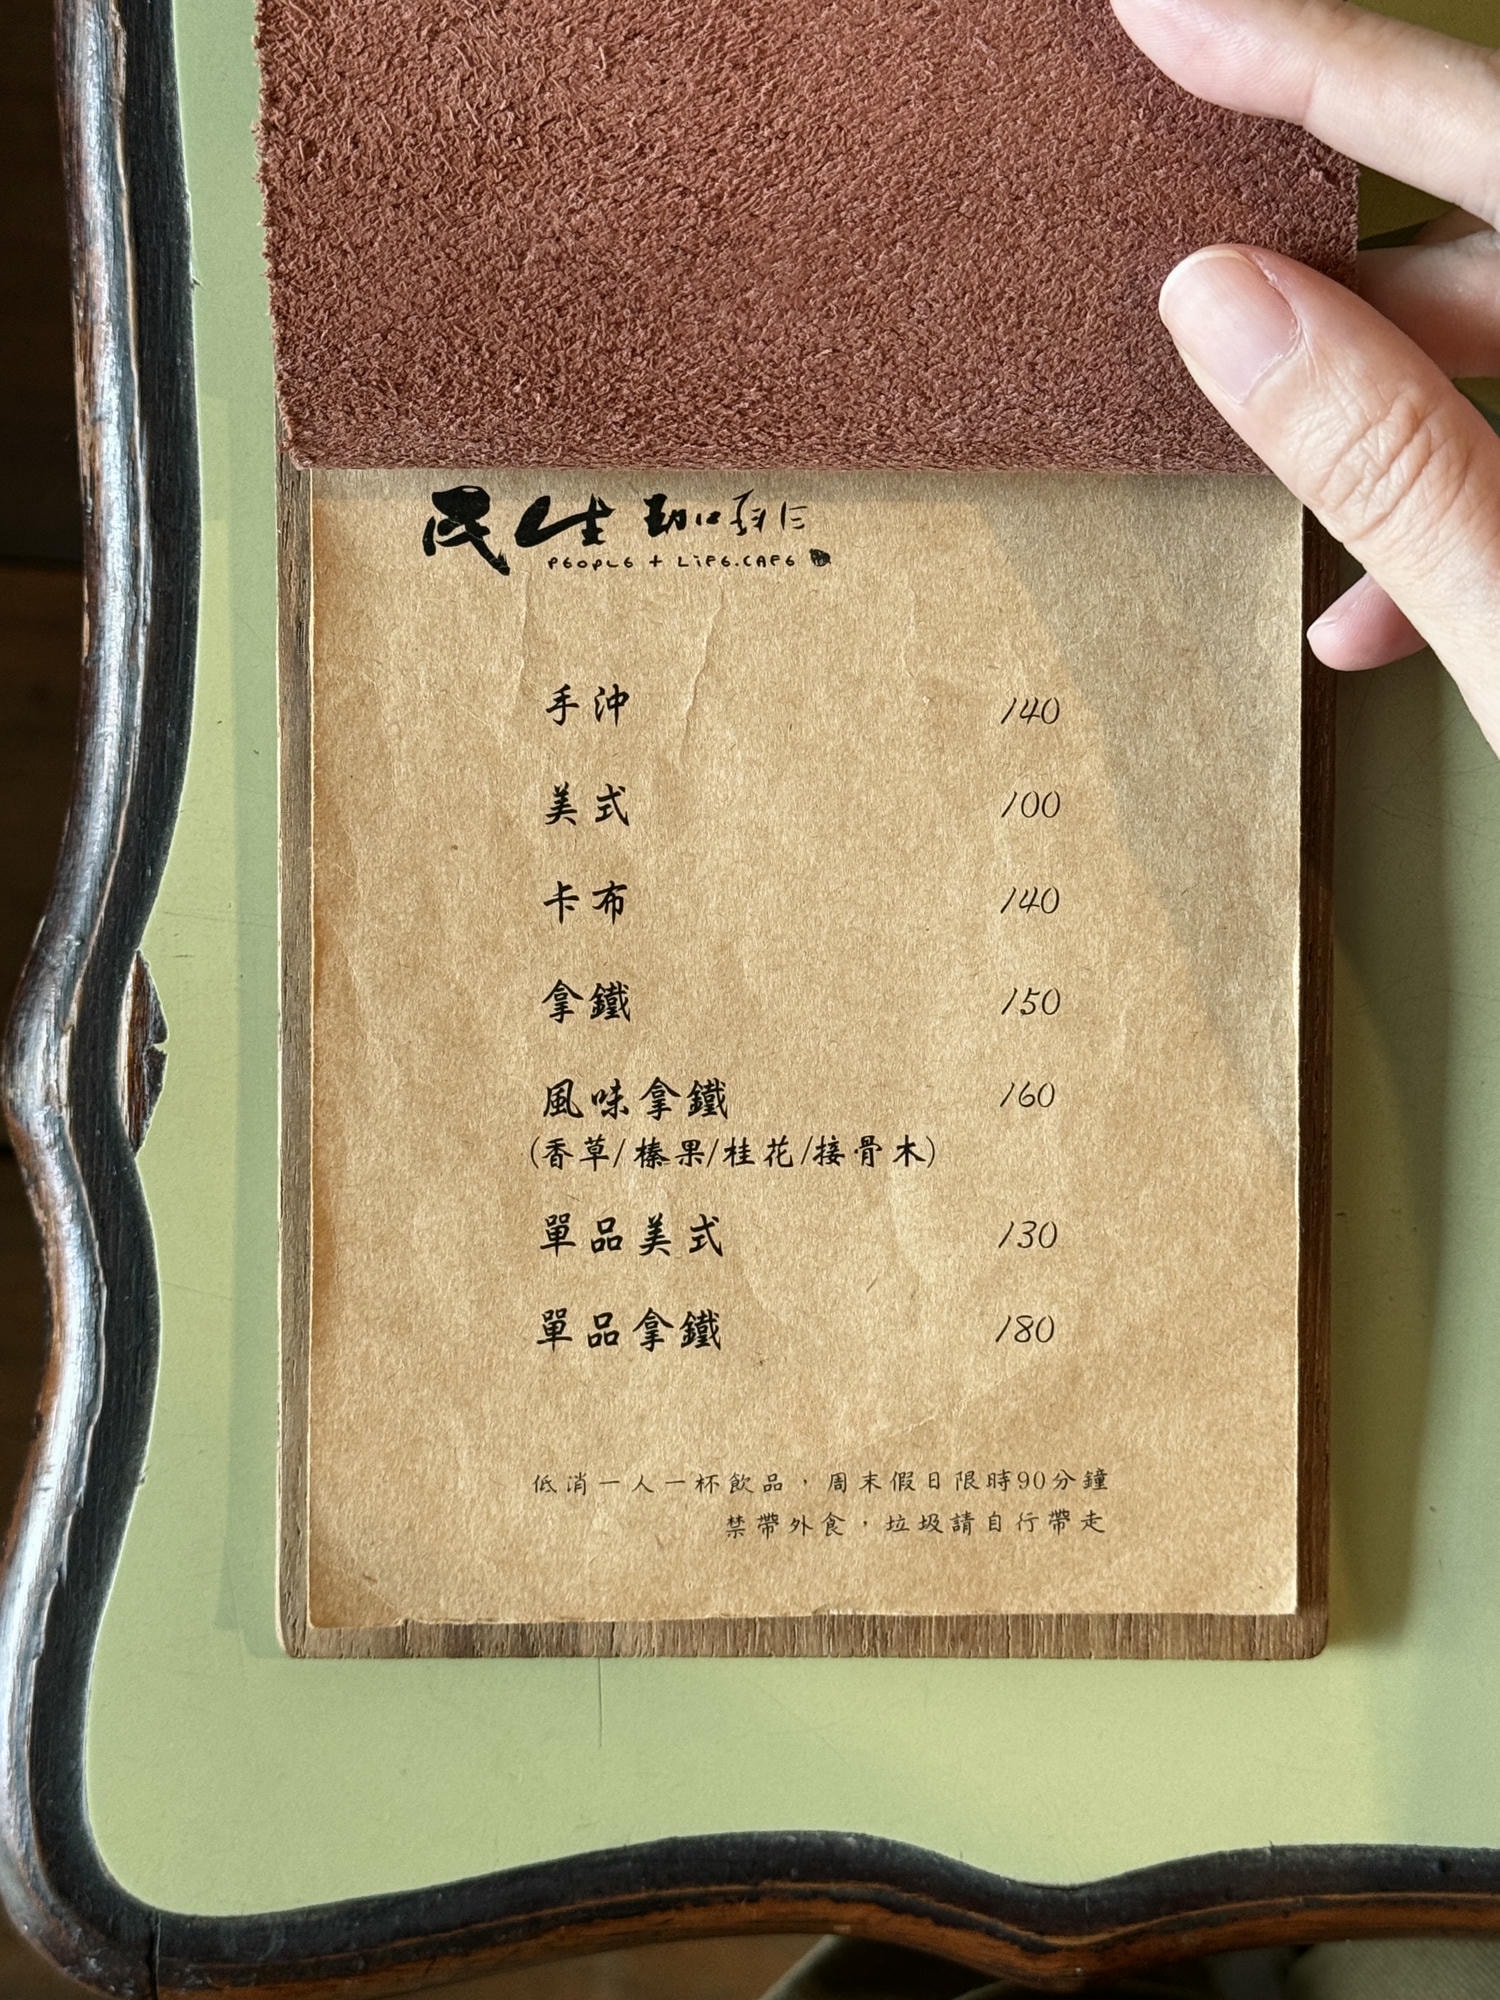 民生 咖啡
PEOPLE + LIFE.CAFE
手沖 140
美式 100
卡布 140
拿鐵 150
風味拿鐵 160
(香草/榛果/桂花/接骨木)
單品美式 130
單品拿鐵 180
低消一人一杯飲品，周末假日限時90分鐘
禁帶外食，垃圾請自行帶走